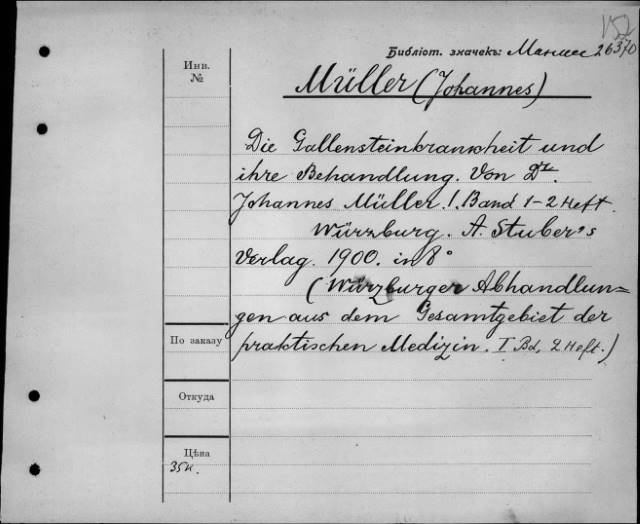 152
Библіот. значекъ: 26370
Инв.
№
Müller (Johannes)
Die Gallensteinkrankheit und
ihre Behandlung. Von Dr.
Johannes Müller. I. Band 1-2 Heft.
Würzburg. A. Stuber's
Verlag. 1900. in 8°
(Würzburger Abhandlun=
gen aus dem Gesamtgebiet der
praktischen Medizin. I Bd, 2 Heft.)
По заказу
Откуда
Цѣна
35к.